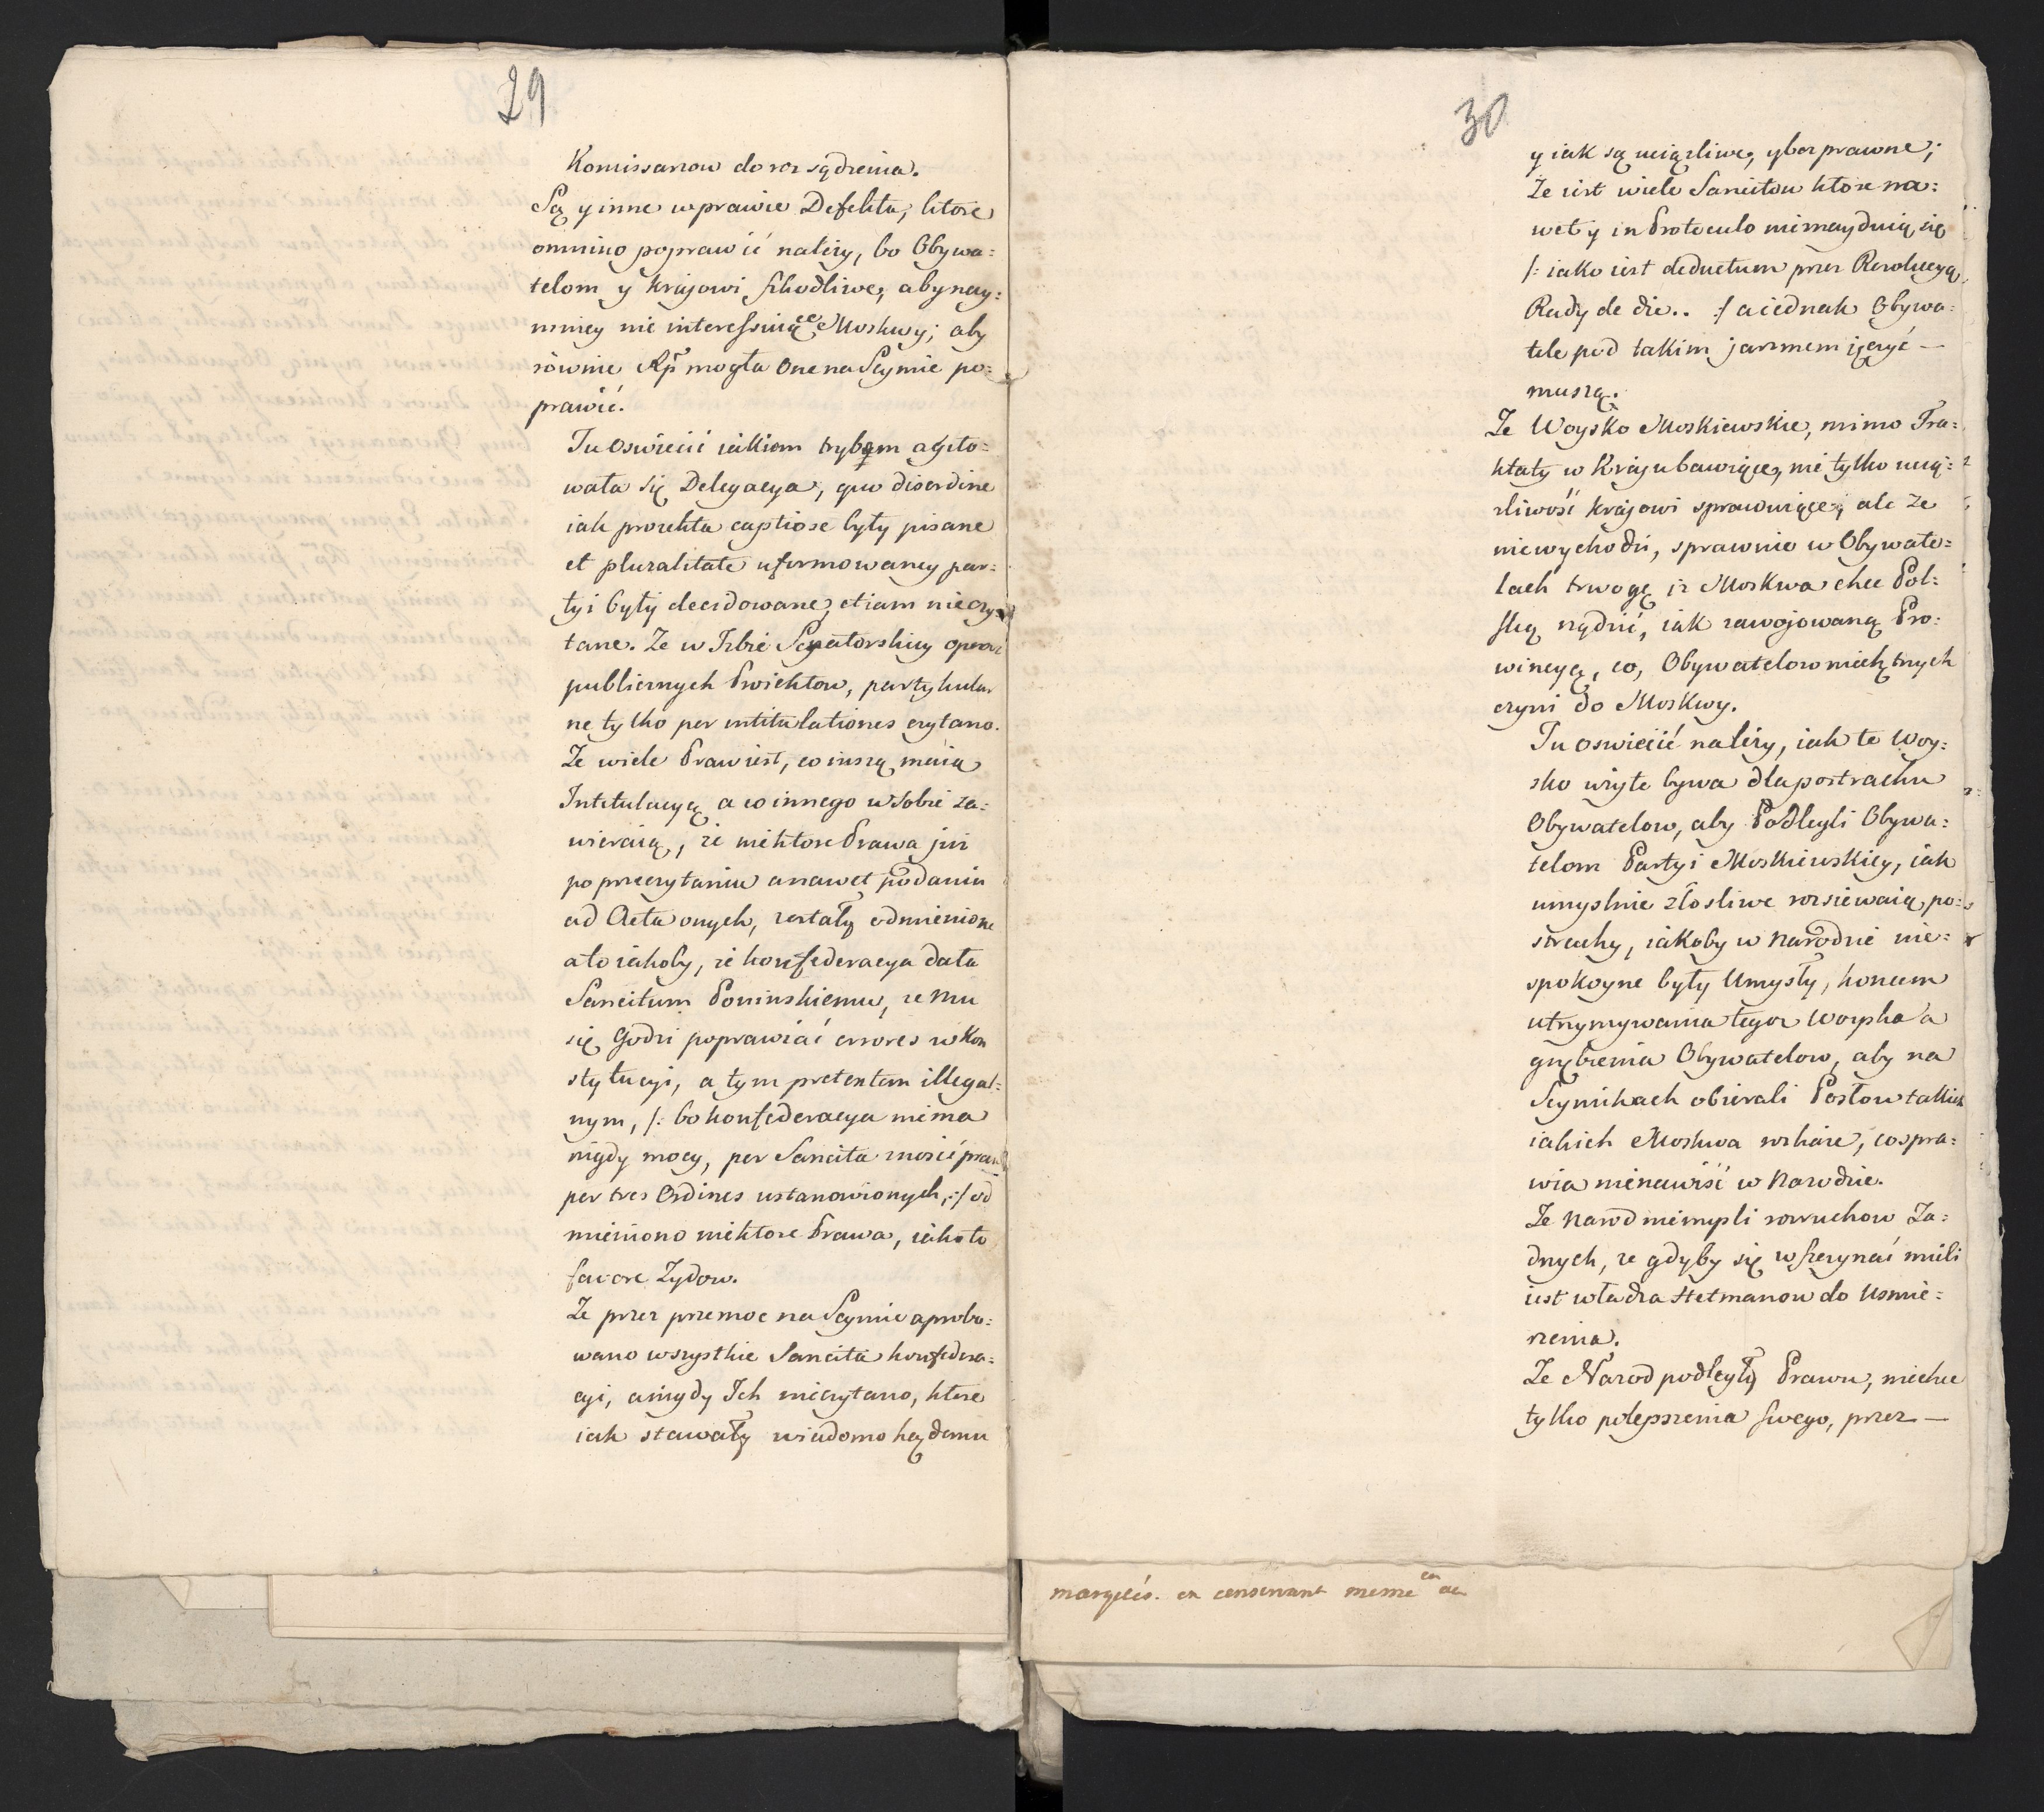 29
Komissarzow do roz sądzenia.
Są y inne w prawie Defekta, ktore
omnino poprawić należy, bo Obywa:
telom y krajowi szkodliwe, a bynay:
mniey nie interessuiące Moskwy; aby
rownie Rp mogła one na Seymie po:
prawić.
Tu oswiecić iakiem trybem agito:
wała się Delegacya, quo disordine
iak proiekta captiose były pisane
et pluralitate uformowaney par:
tyi były decidowane, etiam nieczy
tane. Ze w Izbie Senatorskiey oprocz
publicznych Proiektow, partykular
ne tylko per intitulationes czytano.
Ze wiele Praw iest, co inszą maią
Intitulacyą a co innego w sobie za:
wieraią, że niektore Prawa już
po przeczytaniu a nawet podaniu
ad Acta onych, zostały odmienione
a to iakoby, że konfederacya dała
Sancitum Poninskiemu, ze mu
się godzi poprawiać errores w Kon
stytucyi, a tym pretextem illegal:
nym, /: bo konfederacya niema
nigdy mocy, per Sancita znosić praw
per tres Ordines ustanowionych, :/ od
mieniono niektore Prawa, iako to
favore Zydow.
Ze przez przemoc na Seymie aprobo:
wano wszystkie Sancita konfedera:
cyi, a nigdy Ich nieczytano, ktore
iak stawały wiadomo każdemu
30
y iak są uciążliwe, y bezprawne;
Ze iest wiele Sancitow ktore na:
wet y in Protoculo nieznayduią się
/: iako iest deductum przez Rezolucyą
Rady de die.. :/ a iednak Obywa:
tele pod takim jarzmem jęczyć —
muszą.
Ze Woysko Moskiewskie, mimo Tra:
ktaty w Kraju bawiące, nie tylko ucią:
zliwość krajowi sprawuiące, ale ze
niewychodzi, sprawuie w Obywate:
lach trwogę iz Moskwa chce Pol:
ską rządzić, iak zawojowaną Pro:
wincyą, co, Obywatelow niechętnych
czyni do Moskwy.
Tu oswiecić należy, iak te Woy:
sko użyte bywa dla postrachu
Obywatelow, aby Podlegli Obywa:
telom Partyi Moskiewskiey, iak
umyslnie złosliwe rozsiewaią po:
strachy, iakoby w Narodzie nie:
spokoyne były Umysły, koncem
utrzymywania tegoz Woyska a
gnębienia Obywatelow, aby na
Seymikach obierali Posłow takich
iakich Moskwa wskaże, co spra:
wia nienawiść w Narodzie.
Ze Narod niemysli rozruchow Za:
dnych, ze gdyby się wszczynać mieli
iest władza Hetmanow do Usmie:
rzenia.
Ze Narod podległy Prawu, niechce
tylko polepszenia swego, przez —
en conservant meme en